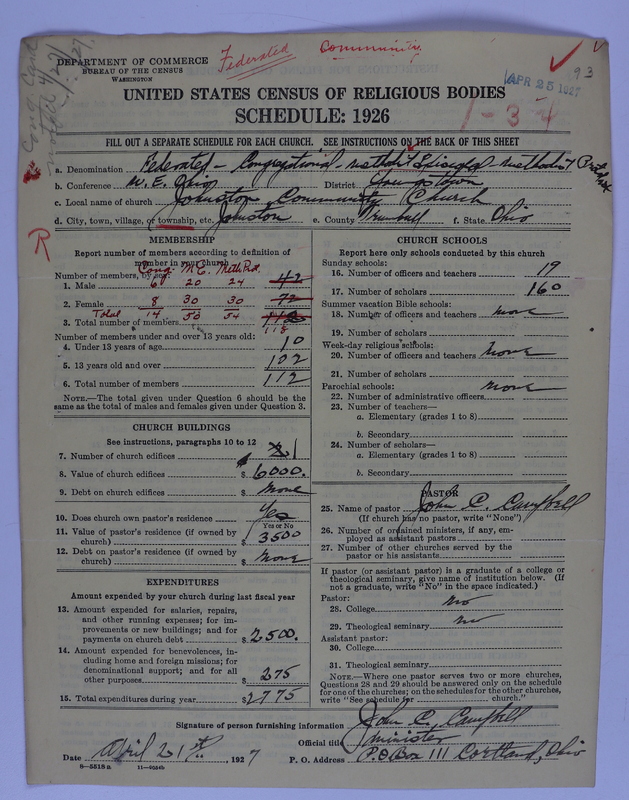 Federated Community
DEPARTMENT OF COMMERCE
BUREAU OF THE CENSUS
WASHINGTON
APR 25 1927
93
UNITED STATES CENSUS OF RELIGIOUS BODIES
SCHEDULE: 1926
1-34
FILL OUT A SEPARATE SCHEDULE FOR EACH CHURCH. SEE INSTRUCTIONS ON THE BACK OF THIS SHEET
a. Denomination Federated - Congregational - Methodist Episcopal - Methodist
b. Conference N. E. Ohio District Youngstown
c. Local name of church Johnston Community Church
d. City, town, village, or township, etc. Johnston e. County Trumbull f. State Ohio
R
MEMBERSHIP
Report number of members according to definition of member in your church
Number of members, by sex: Cong. M.E. Meth. Prot.
1. Male 6 20 24 42
2. Female 8 30 30 72
Total 14 50 54
3. Total number of members 112
118
Number of members under and over 13 years old:
4. Under 13 years of age 10
5. 13 years old and over 102
6. Total number of members 112
NOTE.—The total given under Question 6 should be the
same as the total of males and females given under Question 3.
CHURCH BUILDINGS
See instructions, paragraphs 10 to 12
7. Number of church edifices 1
8. Value of church edifices $ 6000.
9. Debt on church edifices $ None
10. Does church own pastor's residence Yes
Yes or No
11. Value of pastor's residence (if owned by
church) $ 3500
12. Debt on pastor's residence (if owned by
church) $ None
EXPENDITURES
Amount expended by your church during last fiscal year
13. Amount expended for salaries, repairs,
and other running expenses; for im-
provements or new buildings; and for
payments on church debt $ 2500.
14. Amount expended for benevolences, in-
cluding home and foreign missions; for
denominational support; and for all
other purposes $ 275
15. Total expenditures during year $ 2775
CHURCH SCHOOLS
Report here only schools conducted by this church
Sunday schools:
16. Number of officers and teachers 19
17. Number of scholars 160
Summer vacation Bible schools:
18. Number of officers and teachers none
19. Number of scholars
Week-day religious schools:
20. Number of officers and teachers None
21. Number of scholars
Parochial schools: none
22. Number of administrative officers
23. Number of teachers—
a. Elementary (grades 1 to 8)
b. Secondary
24. Number of scholars—
a. Elementary (grades 1 to 8)
b. Secondary
PASTOR
25. Name of pastor John C. Campbell
(If church has no pastor, write "None")
26. Number of ordained ministers, if any, em-
ployed as assistant pastors
27. Number of other churches served by the
pastor or his assistants
If pastor (or assistant pastor) is a graduate of a college or
theological seminary, give name of institution below. (If
not a graduate, write "No" in the space indicated.)
Pastor:
28. College No
29. Theological seminary no
Assistant pastor:
30. College
31. Theological seminary
NOTE.—Where one pastor serves two or more churches,
Questions 28 and 29 should be answered only on the schedule
for one of the churches; on the schedules for the other churches,
write "See schedule for church."
Signature of person furnishing information John C. Campbell
Official title minister
Date April 21st 1927 P. O. Address P.O. Box 111 Cortland, Ohio
8—5518a